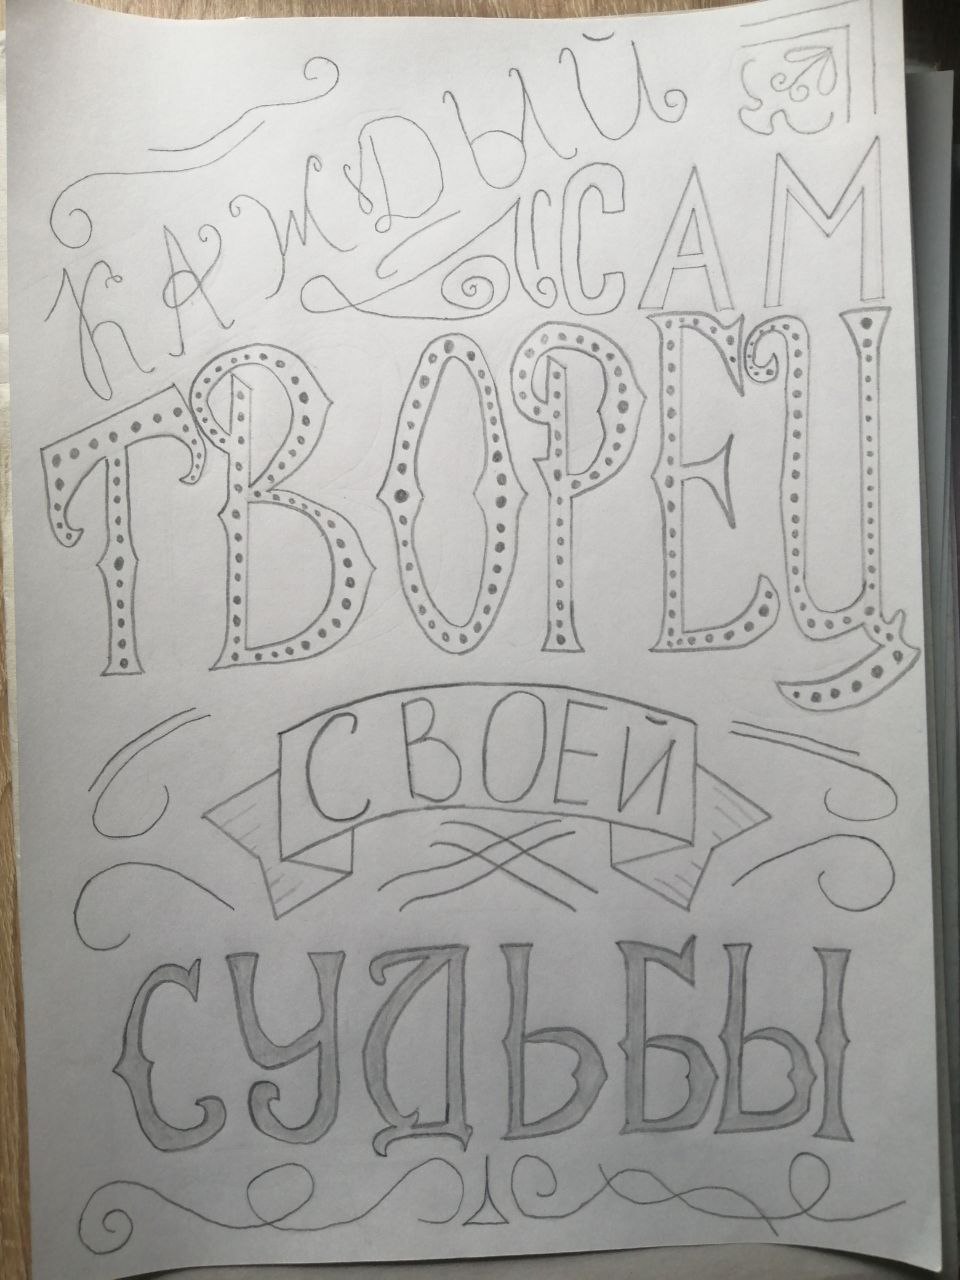 КАЖДЫЙ
САМ
ТВОРЕЦ
СВОЕЙ
СУДЬБЫ